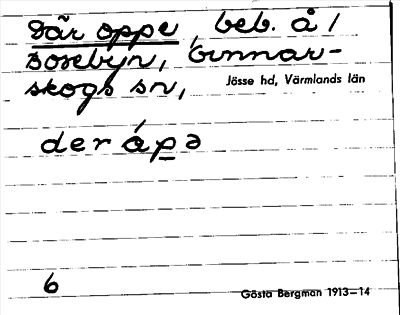 Där oppe, beb. å /
Bosebyn, Gunnar-
skogs sn,
Jösse hd, Värmlands län
der ópə
6
Gösta Bergman 1913–14